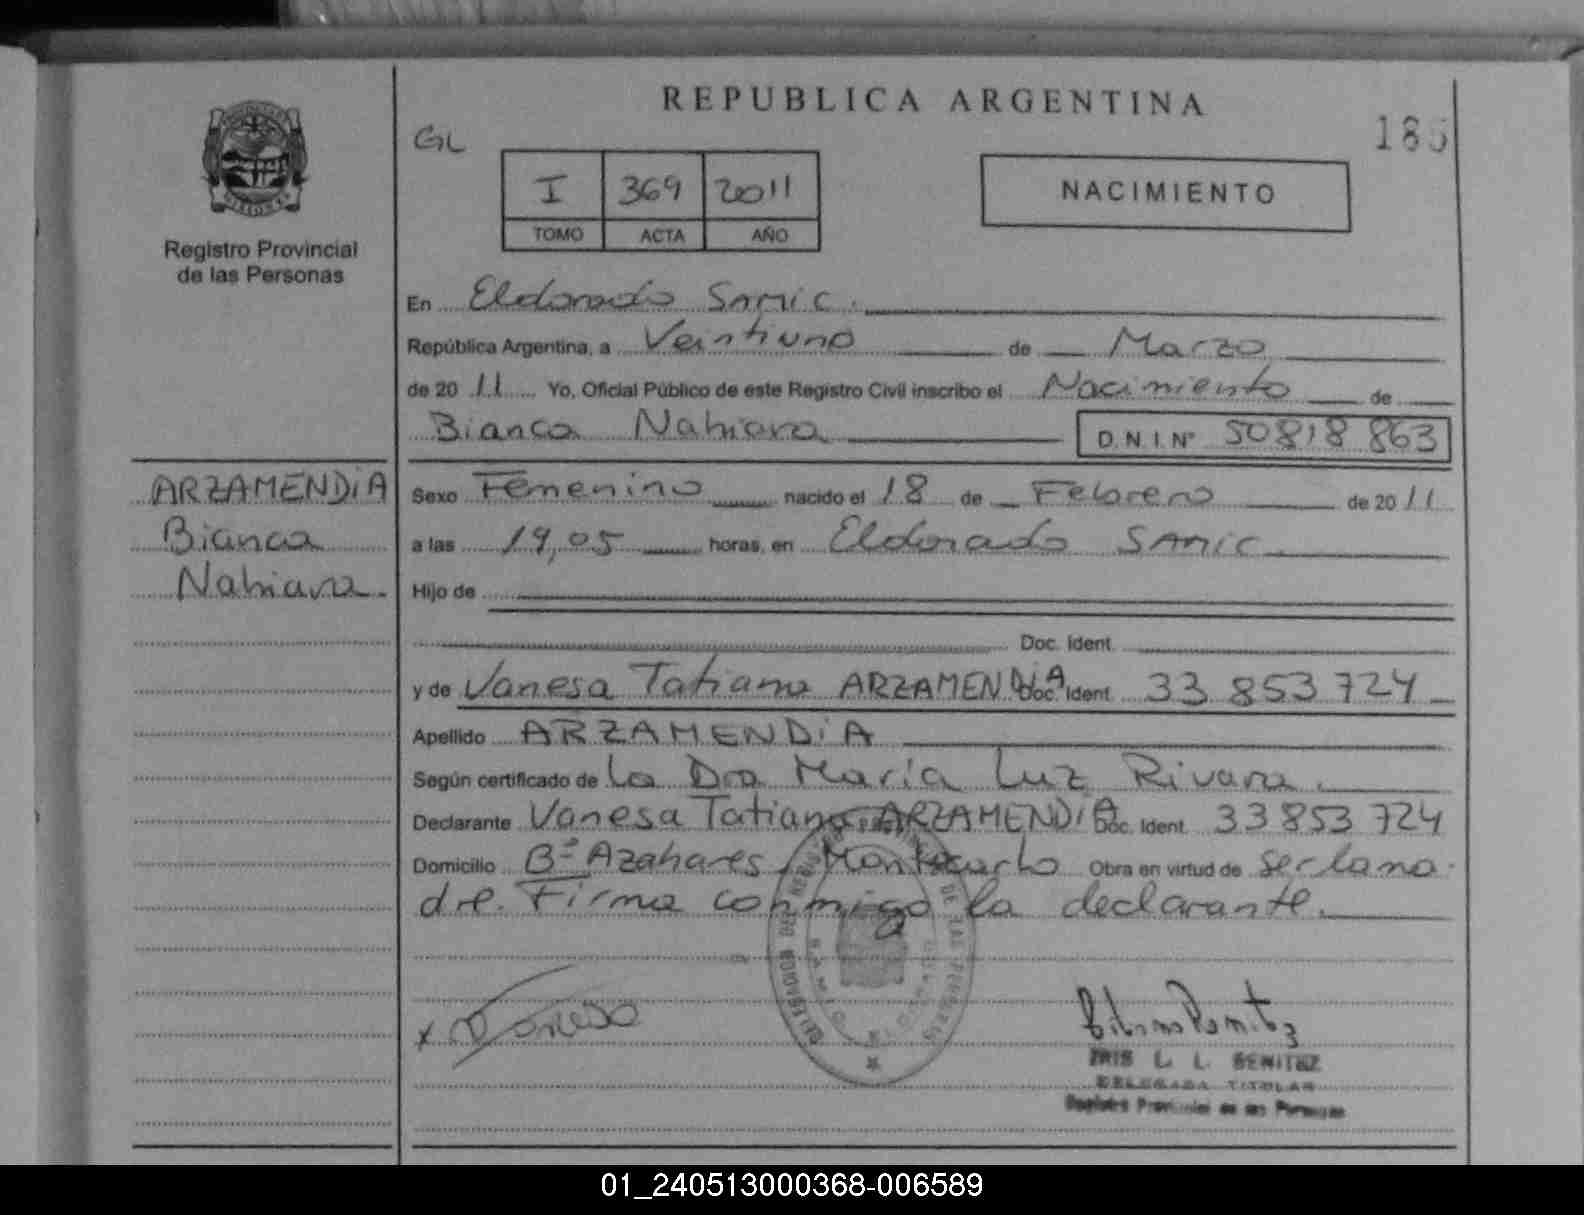 REPUBLICA ARGENTINA
GL
185
I 369 2011
TOMO ACTA AÑO
NACIMIENTO
Registro Provincial
de las Personas
En Eldorado SAMIC.
República Argentina, a Veintiuno de Marzo
de 20 11 Yo, Oficial Público de este Registro Civil inscribo el Nacimiento de
Bianca Nahiara D.N.I.Nº 50818863
ARZAMENDiA
Bianca
Nahiara.
Sexo Femenino nacido el 18 de Febrero de 20 11
a las 19,05 horas, en Eldorado SAMIC.
Hijo de
Doc. Ident.
y de Vanesa Tatiana ARZAMENDiA Doc. Ident. 33 853 724
Apellido ARZAMENDiA
Según certificado de la Dra María Luz Rivara.
Declarante Vanesa Tatiana ARZAMENDiA Doc. Ident. 33853 724
Domicilio Bº Azahares, Montecarlo Obra en virtud de ser la ma-
dre. Firma conmigo la declarante.
x Vanesa
IRIS L. L. BENITEZ
DELEGADA TITULAR
Registro Provincial de las Personas
01_240513000368-006589